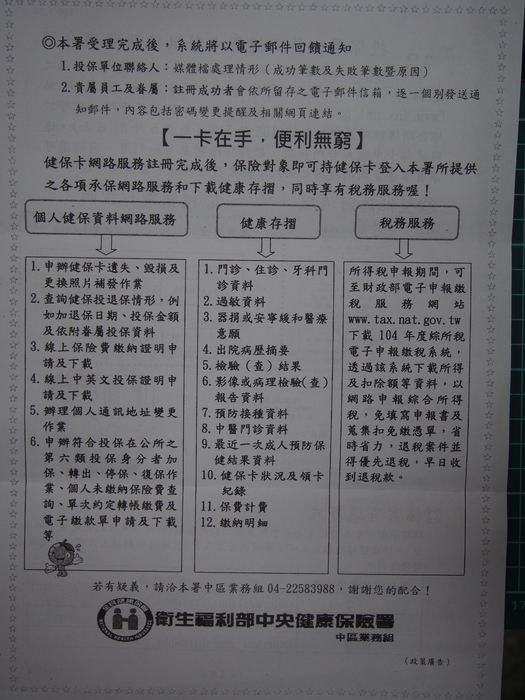 ◎本署受理完成後，系統將以電子郵件回饋通知
1.投保單位聯絡人：媒體檔處理情形（成功筆數及失敗筆數暨原因）
2.貴屬員工及眷屬：註冊成功者會依所留存之電子郵件信箱，逐一個別發送通
知郵件，內容包括密碼變更提醒及相關網頁連結。
【一卡在手，便利無窮】
健保卡網路服務註冊完成後，保險對象即可持健保卡登入本署所提供
之各項承保網路服務和下載健康存摺，同時享有稅務服務喔！
個人健保資料網路服務
1.申辦健保卡遺失、毀損及
更換照片補發作業
2.查詢健保投退保情形，例
如加退保日期、投保金額
及依附眷屬投保資料
3.線上保險費繳納證明申
請及下載
4.線上中英文投保證明申
請及下載
5.辦理個人通訊地址變更
作業
6.申辦符合投保在公所之
第六類投保身分者加
保、轉出、停保、復保作
業、個人未繳納保險費查
詢、單次約定轉帳繳費及
電子繳款單申請及下載
等
健康存摺
1.門診、住診、牙科門
診資料
2.過敏資料
3.器捐或安寧緩和醫療
意願
4.出院病歷摘要
5.檢驗（查）結果
6.影像或病理檢驗(查)
報告資料
7.預防接種資料
8.中醫門診資料
9.最近一次成人預防保
健結果資料
10.健保卡狀況及領卡
紀錄
11.保費計費
12.繳納明細
稅務服務
所得稅申報期間，可
至財政部電子申報繳
稅服務網站
www.tax.nat.gov.tw
下載104年度綜所稅
電子申報繳稅系統，
透過該系統下載所得
及扣除額等資料，以
網路申報綜合所得
稅，免填寫申報書及
蒐集扣免繳憑單，省
時省力，退稅案件並
得優先退稅，早日收
到退稅款。
若有疑義，請洽本署中區業務組04-22583988，謝謝您的配合！
衛生福利部中央健康保險署
中區業務組
（政策廣告）